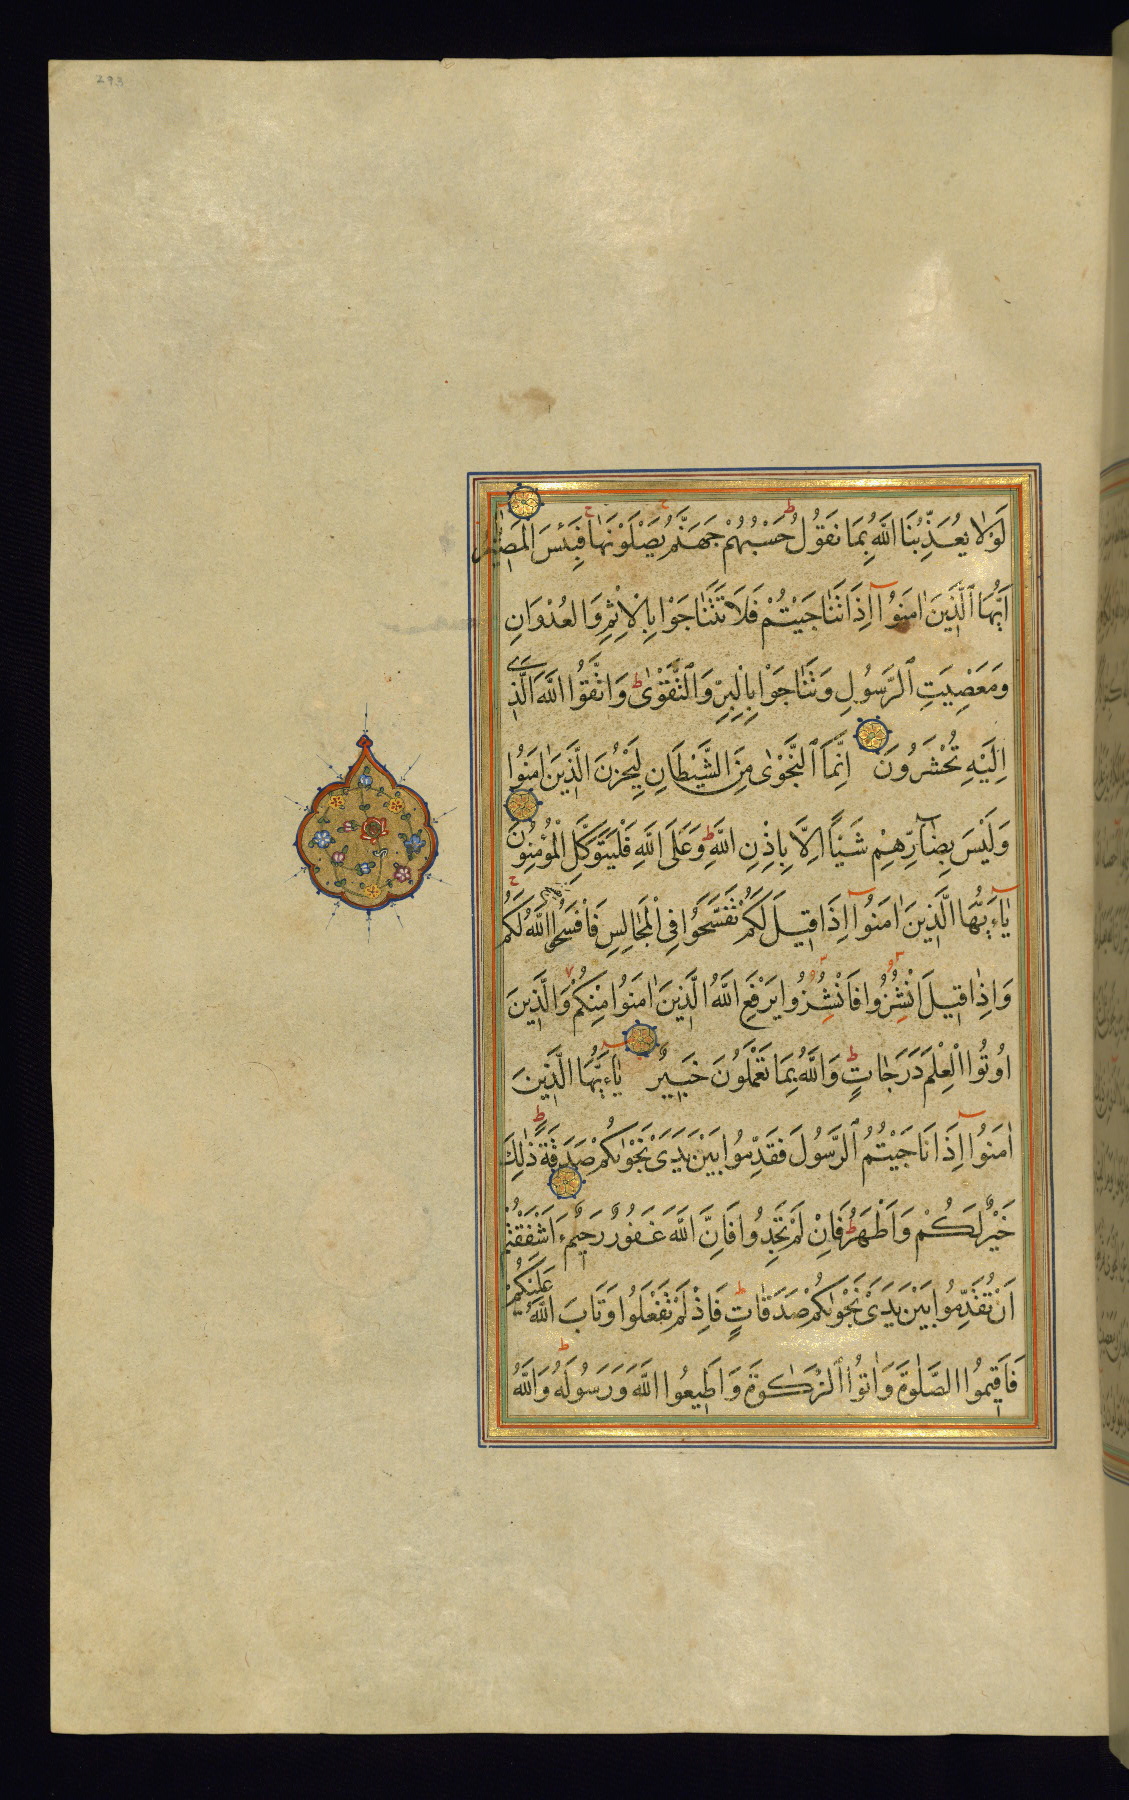 293
لَوْلَا يُعَذِّبُنَا اللَّهُ بِمَا نَقُولُ حَسْبُهُمْ جَهَنَّمُ يَصْلَوْنَهَا فَبِئْسَ الْمَصِيرُ
اَيُّهَا الَّذِينَ اٰمَنُوا اِذَا تَنَاجَيْتُمْ فَلَا تَتَنَاجَوْا بِالْاِثْمِ وَالْعُدْوَانِ
وَمَعْصِيَتِ الرَّسُولِ وَتَنَاجَوْا بِالْبِرِّ وَالتَّقْوٰى ط وَاتَّقُوا اللَّهَ الَّذِى
اِلَيْهِ تُحْشَرُونَ اِنَّمَا النَّجْوٰى مِنَ الشَّيْطَانِ لِيَحْزُنَ الَّذِينَ اٰمَنُوا
وَلَيْسَ بِضَآرِّهِمْ شَيْئًا اِلَّا بِاِذْنِ اللَّهِ ط وَعَلَى اللَّهِ فَلْيَتَوَكَّلِ الْمُؤْمِنُونَ
يَآءَيُّهَا الَّذِينَ اٰمَنُوٓا اِذَا قِيلَ لَكُمْ تَفَسَّحُوا فِى الْمَجَالِسِ فَافْسَحُوا يَفْسَحِ اللَّهُ لَكُمْ ج
وَاِذَا قِيلَ انْشُزُوا فَانْشُزُوا يَرْفَعِ اللَّهُ الَّذِينَ اٰمَنُوا مِنْكُمْ وَالَّذِينَ
اُوتُوا الْعِلْمَ دَرَجَاتٍ ط وَاللَّهُ بِمَا تَعْمَلُونَ خَبِيرٌ يَاءَيُّهَا الَّذِينَ
اٰمَنُوٓا اِذَا نَاجَيْتُمُ الرَّسُولَ فَقَدِّمُوا بَيْنَ يَدَىْ نَجْوٰيكُمْ صَدَقَةً ط ذٰلِكَ
خَيْرٌ لَكُمْ وَاَطْهَرُ ط فَاِنْ لَمْ تَجِدُوا فَاِنَّ اللَّهَ غَفُورٌ رَحِيمٌ ءَاَشْفَقْتُمْ
اَنْ تُقَدِّمُوا بَيْنَ يَدَىْ نَجْوٰيكُمْ صَدَقَاتٍ ط فَاِذْ لَمْ تَفْعَلُوا وَتَابَ اللَّهُ عَلَيْكُمْ
فَاَقِيمُوا الصَّلٰوةَ وَاٰتُوا الزَّكٰوةَ وَاَطِيعُوا اللَّهَ وَرَسُولَهُ ط وَاللَّهُ